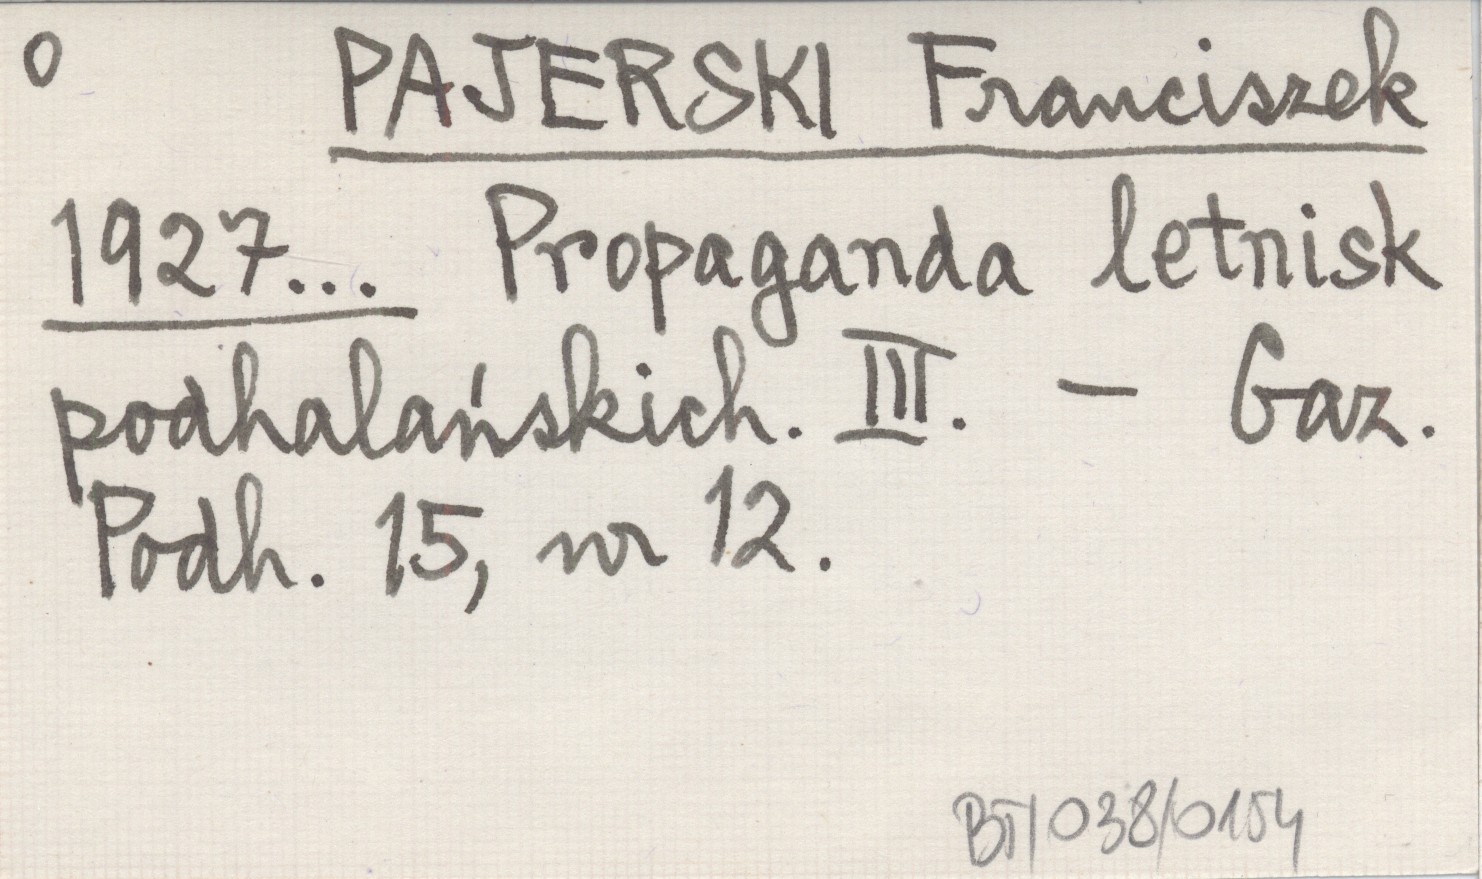 o PAJERSKI Franciszek
1927... Propaganda letnisk
podhalańskich. III. - Gaz.
Podh. 15, nr 12.
BT/038/0154